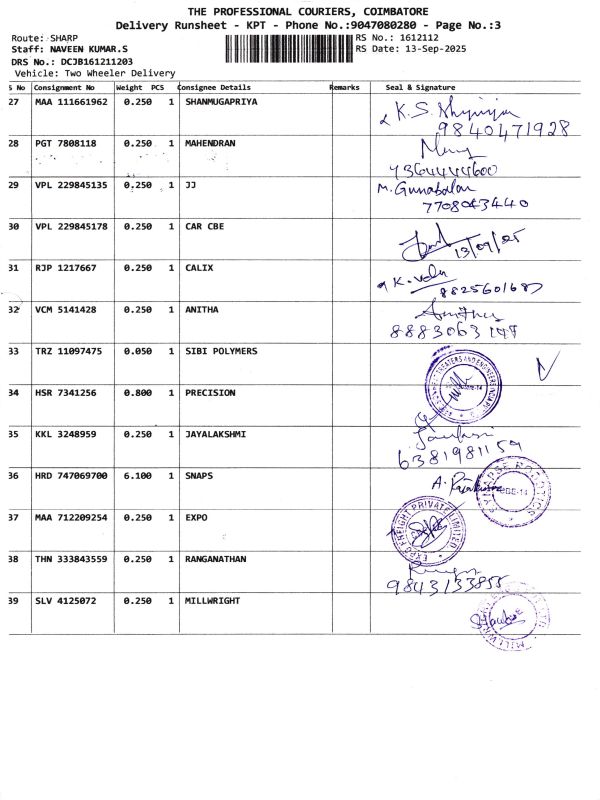 THE PROFESSIONAL COURIERS, COIMBATORE
Delivery Runsheet - KPT - Phone No.:9047080280 - Page No.:3
Route: SHARP RS No.: 1612112
Staff: NAVEEN KUMAR.S RS Date: 13-Sep-2025
DRS No.: DCJB161211203
Vehicle: Two Wheeler Delivery
S No Consignment No Weight PCS Consignee Details Remarks Seal & Signature
27 MAA 111661962 0.250 1 SHANMUGAPRIYA K.S.
9840471928
28 PGT 7808118 0.250 1 MAHENDRAN
7364444600
29 VPL 229845135 0.250 1 JJ M. Gunabalan
7708043440
30 VPL 229845178 0.250 1 CAR CBE
13/09/25
31 RJP 1217667 0.250 1 CALIX K. Velu
32 VCM 5141428 0.250 1 ANITHA Anitha
33 TRZ 11097475 0.050 1 SIBI POLYMERS
34 HSR 7341256 0.800 1 PRECISION
35 KKL 3248959 0.250 1 JAYALAKSHMI
6381981159
36 HRD 747069700 6.100 1 SNAPS A.
ROBOTICS
37 MAA 712209254 0.250 1 EXPO EXPO FREIGHT PRIVATE LIMITED
38 THN 333843559 0.250 1 RANGANATHAN
9843133855
39 SLV 4125072 0.250 1 MILLWRIGHT